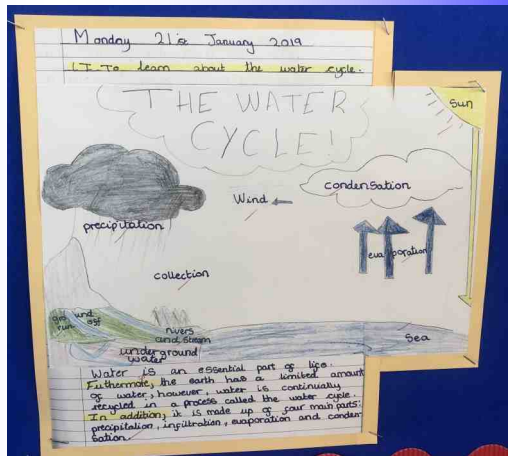 Monday 21st January 2019
LI To learn about the water cycle.
THE WATER
CYCLE!
Sun
condensation
Wind
precipitation
evaporation
collection
ground
runoff
rivers
and stream
Sea
underground
water
Water is an essential part of life.
Furthermore, the earth has a limited amount
of water, however, water is continually
recycled in a process called the water cycle.
In addition, it is made up of four main parts:
precipitation, infiltration, evaporation and conden-
sation.